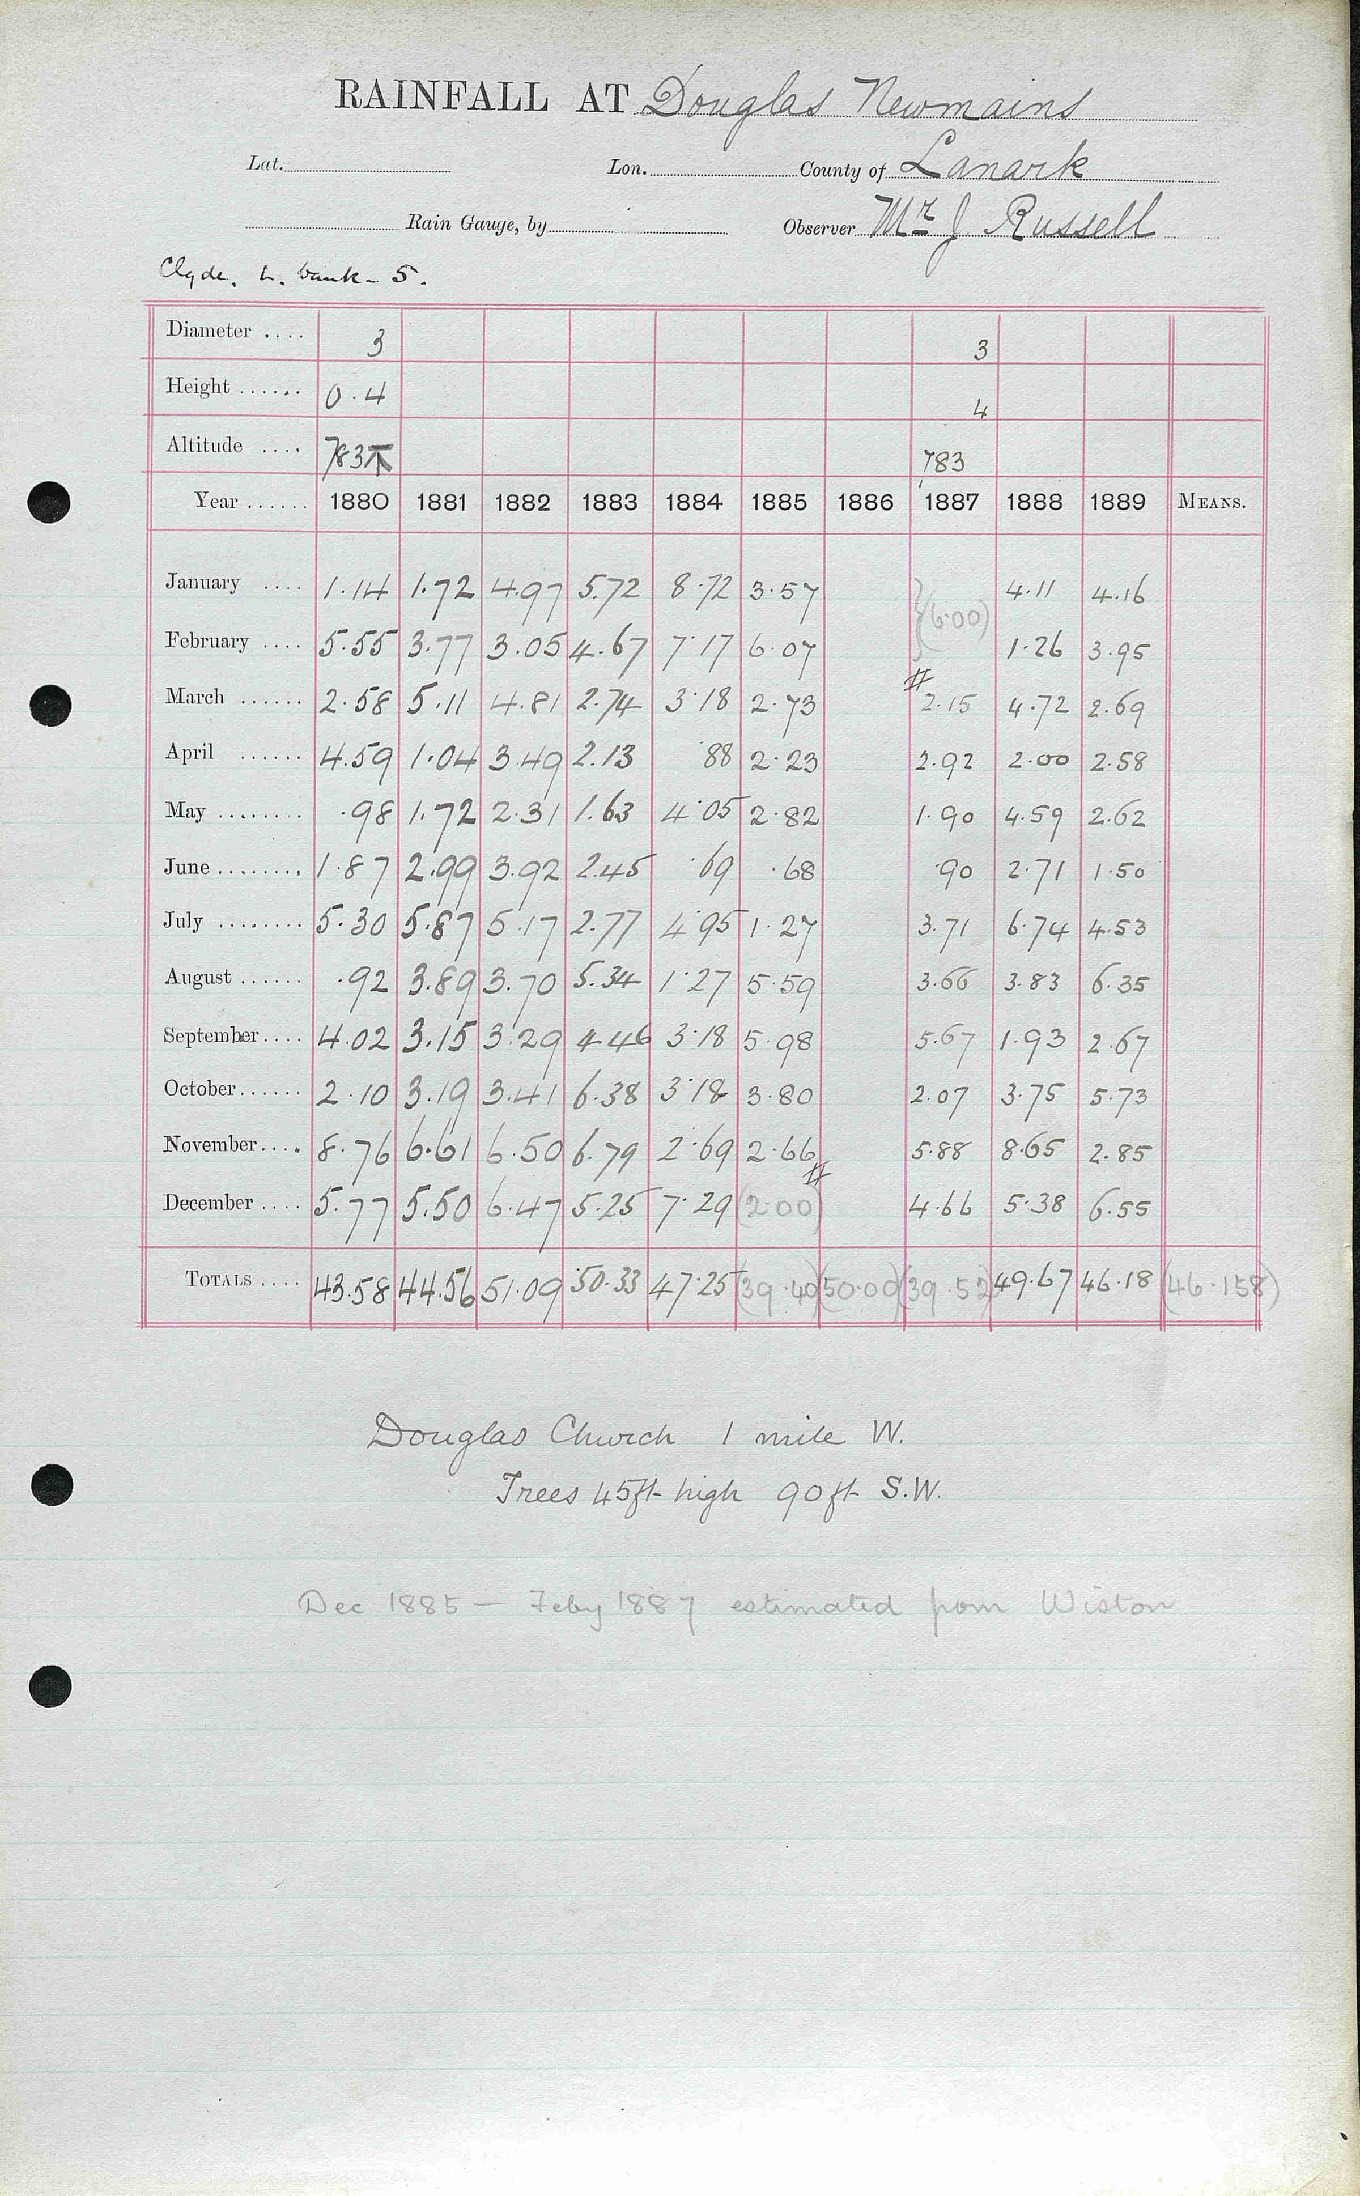 RAINFALL AT Douglas Newmains
Lat. Lon. County of Lanark
Rain Gauge, by Observer Mr J Russell
Clyde. L. bank - 5.
Diameter .... 3 3
Height ...... 0.4 4
Altitude .... 783 783
Year ...... 1880 1881 1882 1883 1884 1885 1886 1887 1888 1889 MEANS.
January .... 1.14 1.72 4.97 5.72 8.72 3.57 } (6.00) 4.11 4.16
February .... 5.55 3.77 3.05 4.67 7.17 6.07 1.26 3.95
March ...... 2.58 5.11 4.81 2.74 3.18 2.73 # 2.15 4.72 2.69
April ...... 4.59 1.04 3.49 2.13 .88 2.23 2.92 2.00 2.58
May ........ .98 1.72 2.31 1.63 4.05 2.82 1.90 4.59 2.62
June ........ 1.87 2.99 3.92 2.45 .69 .68 .90 2.71 1.50
July ........ 5.30 5.87 5.17 2.77 4.95 1.27 3.71 6.74 4.53
August ...... .92 3.89 3.70 5.34 1.27 5.59 3.66 3.83 6.35
September .... 4.02 3.15 3.29 4.46 3.18 5.98 5.67 1.93 2.67
October ...... 2.10 3.19 3.41 6.38 3.18 3.80 2.07 3.75 5.73
November .... 8.76 6.61 6.50 6.79 2.69 2.66 # 5.88 8.65 2.85
December .... 5.77 5.50 6.47 5.25 7.29 (2.00) 4.66 5.38 6.55
TOTALS .... 43.58 44.56 51.09 50.33 47.25 (39.40) (50.00) (39.52) 49.67 46.18 (46.158)
Douglas Church 1 mile W.
Trees 45ft high 90ft S.W.
Dec 1885 — Feby 1887 estimated from Wiston